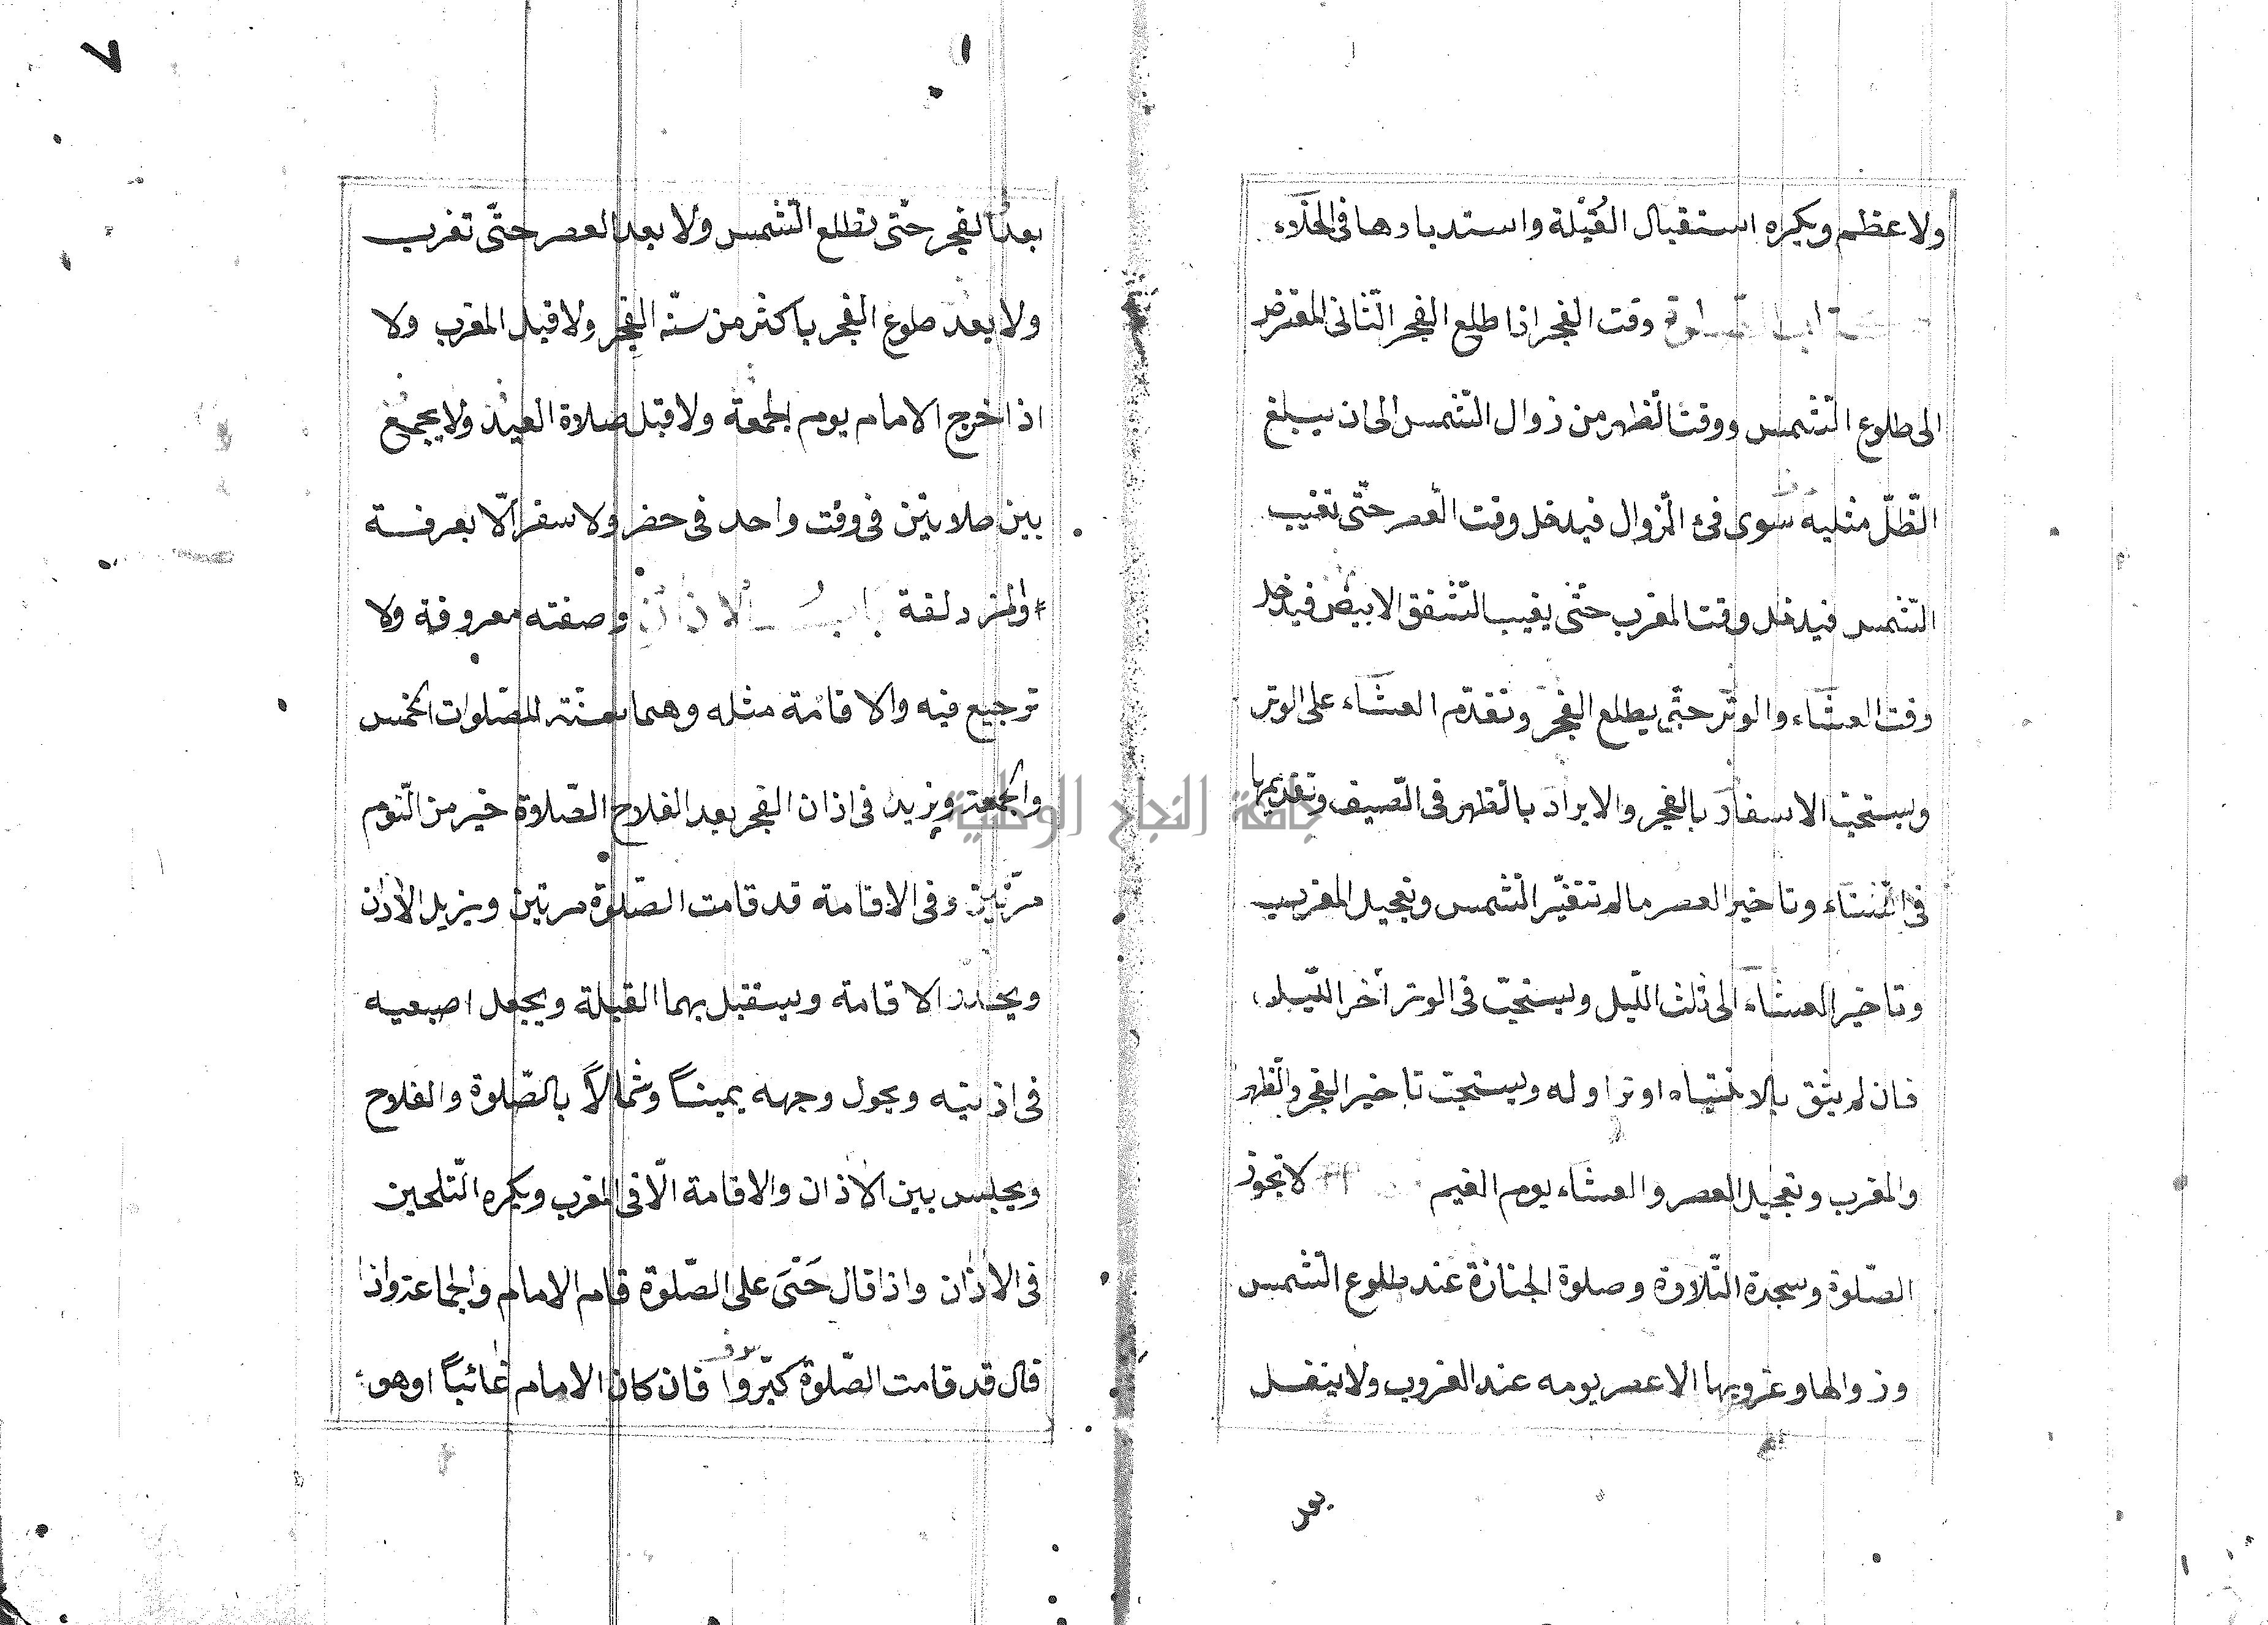 ولا عظم ويكره استقبال القبلة واستدبارها فى الخلاء
الصلوة وقت الفجر اذا طلع الفجر الثانى المعترض
الى طلوع الشّمس ووقت الظهر من زوال الشّمس الى ان يبلغ
الظّلّ مثليه سوى فئ الزّوال فيدخل وقت العصر حتّى تغيب
الشّمس فيدخل وقت المغرب حتّى يغيب الشّفق الابيض فيدخل
وقت العشاء والوتر حتّى يطلع الفجر وتقدّم العشاء على الوتر
ويستحبّ الاسفار بالفجر والابراد بالظهر فى الصّيف وتقديمها
فى الشّتاء وتاخير العصر ما لم تتغيّر الشّمس وتعجيل المغرب
وتاخير العشاء الى ثلث اللّيل ويستحبّ فى الوتر آخر اللّيل
فان لم يثق بالانتباه اوتر اوله ويستحبّ تاخير الفجر والظهر
والمغرب وتعجيل العصر والعشاء يوم الغيم لا تجوز
الصّلوة وسجدة التّلاوة وصلوة الجنازة عند طلوع الشّمس
وزوالها وغروبها الا عصر يومه عند الغروب ولا يتنفل
بعد
٧
بعد الفجر حتّى تطلع الشّمس ولا بعد العصر حتّى تغرب
ولا بعد طلوع الفجر باكثر من سنّة الفجر ولا قبل المغرب ولا
اذا خرج الامام يوم الجمعة ولا قبل صلاة العيد ولا يجمع
بين صلاتين فى وقت واحد فى حضر ولا سفر الّا بعرفة
والمزدلفة باب الاذان وصفته معروفة ولا
ترجيع فيه والاقامة مثله وهما سنّة للصّلوات الخمس
والجمعة ويزيد فى اذان الفجر بعد الفلاح الصّلاوة خير من النّوم
مرّتين وفى الاقامة قد قامت الصّلوة مرتين ويزيل الاذان
ويحدر الاقامة ويستقبل بهما القبلة ويجعل اصبعيه
فى اذنيه ويحول وجهه يميناً وشمالاً بالصّلوة والفلاح
ويجلس بين الاذان والاقامة الّا فى المغرب ويكره التّلحين
فى الاذان واذا قال حَىّ على الصّلوة قام الامام والجماعة واذا
قال قد قامت الصّلوة كبّروا فان كان الامام غائباً او هو
جامعة النجاح الوطنية